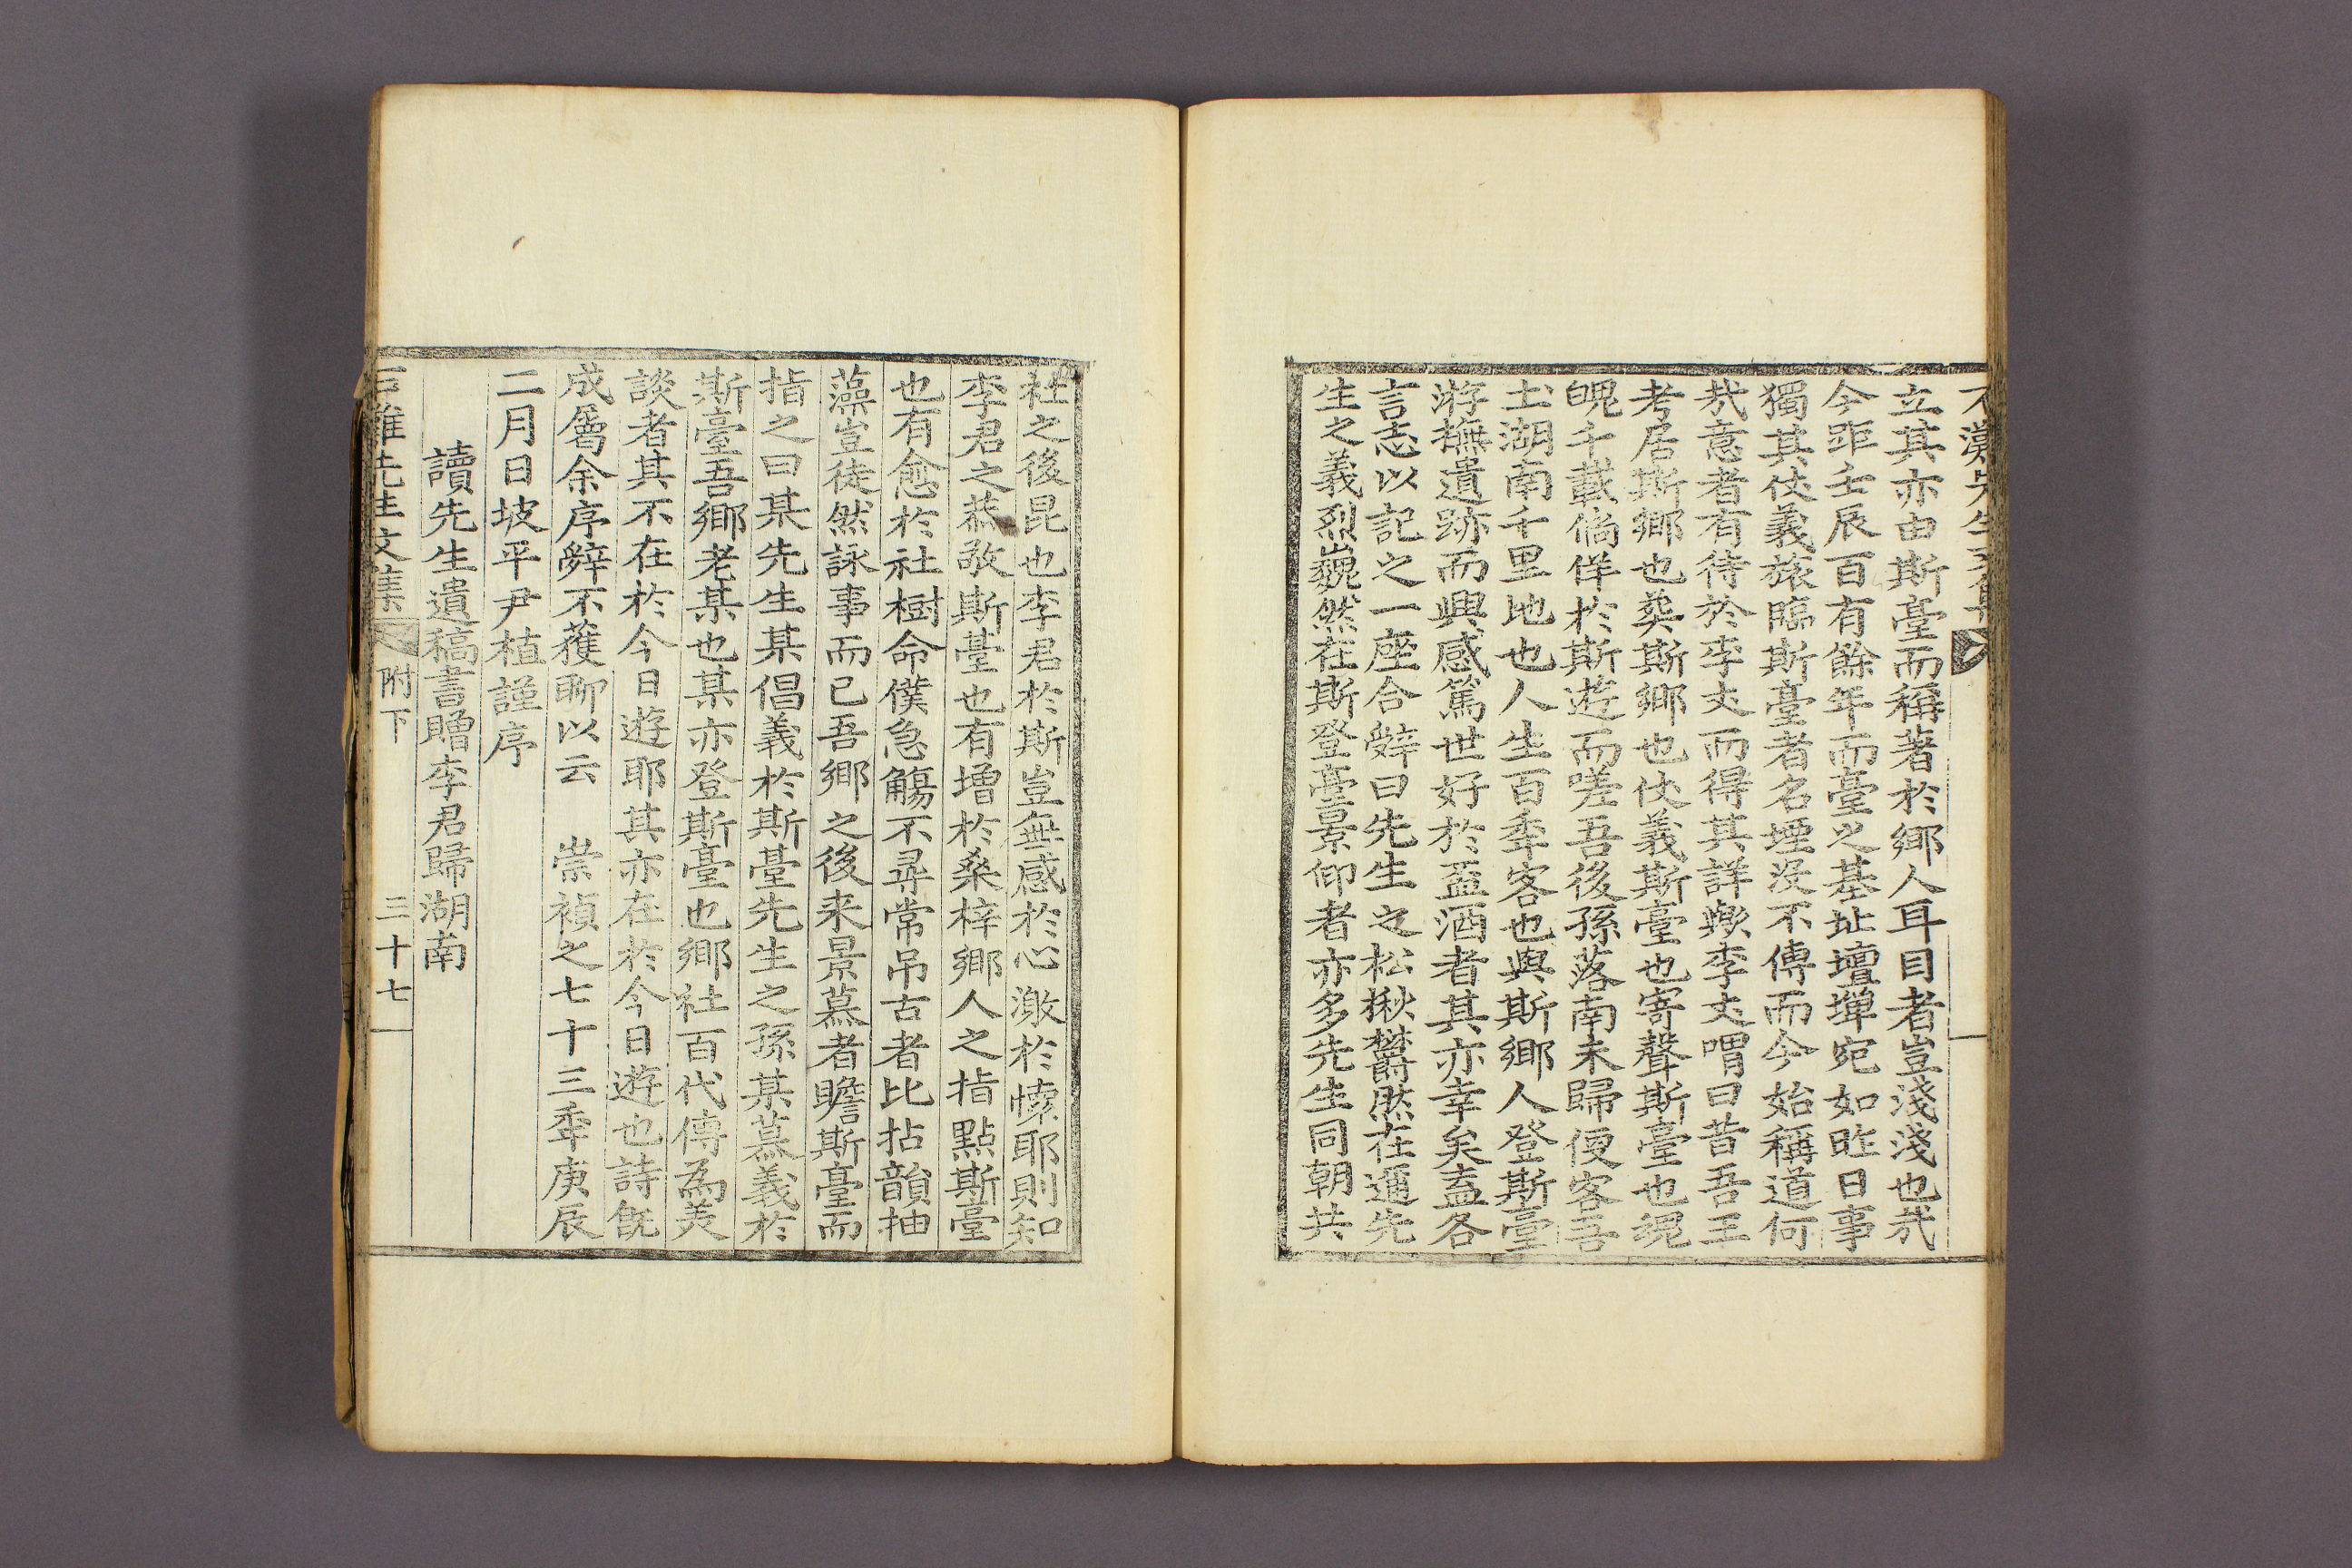 立其亦由斯臺而稱著於鄉人耳目者豈淺淺也㢤
今距壬辰百有餘年而臺之基址壇墠宛如昨日事
獨其仗義旅臨斯臺者名堙沒不傳而今始稱道何
㢤意者有待於李丈而得其詳歟李丈喟曰昔吾王
考居斯鄉也葬斯鄉也仗義斯臺也寄聲斯臺也魂
魄千載倘佯於斯遊而嗟吾後孫落南未歸便客吾
土湖南千里地也人生百年客也與斯鄉人登斯臺
游撫遺跡而興感篤世好於盃酒者其亦幸矣盍各
言志以記之一座合辭曰先生之松楸欝然在邇先
生之義烈巍然在斯登臺景仰者亦多先生同朝共
社之後昆也李君於斯豈無感於心激於懷耶則知
李君之恭敬斯臺也有增於桑梓鄉人之指點斯臺
也有愈於社樹命僕急觴不尋常吊古者比拈韻抽
藻豈徒然詠事而已吾鄉之後来景慕者瞻斯臺而
指之曰某先生某倡義於斯臺先生之孫某慕義於
斯臺吾鄉老某也某亦登斯臺也鄉社百代傳為美
談者其不在於今日遊耶其亦在於今日遊也詩旣
成屬余序辭不獲聊以云　崇禎之七十三年庚辰
二月日坡平尹植謹序
讀先生遺稿書贈李君歸湖南
先生文集　附下　三十七